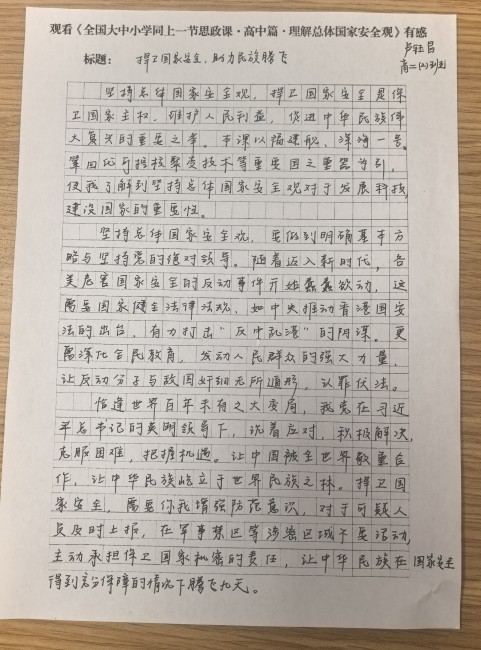 观看《全国大中小学同上一节思政课·高中篇·理解总体国家安全观》有感
高二(2)班
标题：捍卫国家安全，助力民族腾飞
坚持总体国家安全观，捍卫国家安全是保
卫国家主权，维护人民利益，促进中华民族伟
大复兴的重要之举。本课以福建舰、深海一号、
第四代可控核聚变技术等重要国之重器导引，
使我了解到坚持总体国家安全观对于发展科技，
建设国家的重要性。
坚持总体国家安全观，要做到明确基本方
略与坚持党的绝对领导。随着迈入新时代，各
类危害国家安全的反动事件开始蠢蠢欲动，这
需要国家健全法律法规，如中央推动香港国安
法的出台，有力打击“反中乱港”的阴谋。更
需深化全民教育，发动人民群众的强大力量，
让反动分子与敌国奸细无所遁形，认罪伏法。
恰逢世界百年未有之大变局，我党在习近
平总书记的英明领导下，沉着应对，积极解决，
克服困难，把握机遇。让中国被全世界敬重合
作，让中华民族屹立于世界民族之林。捍卫国
家安全，需要你我增强防范意识，对于可疑人
员及时上报，在军事禁区等涉密区域不要活动，
主动承担保卫国家机密的责任，让中华民族在国家安全
得到充分保障的情况下腾飞九天。